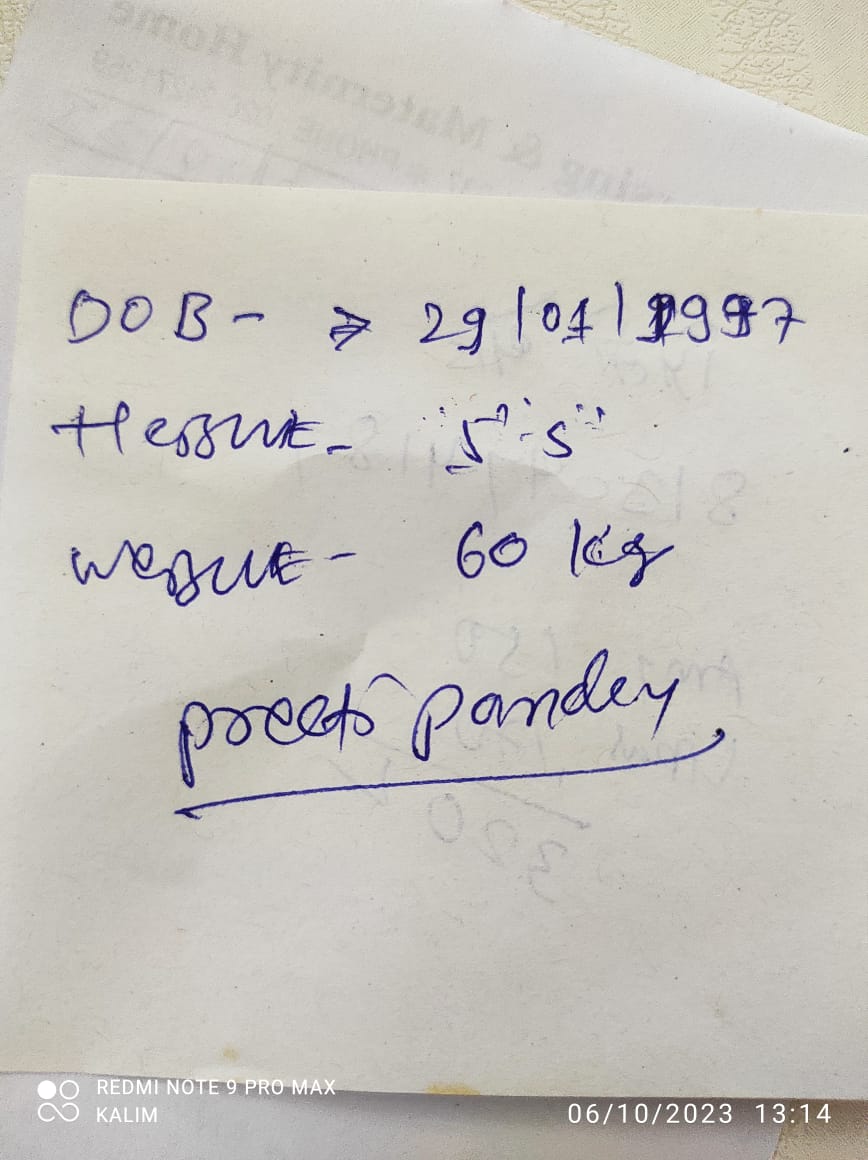 Maternity Home
DOB - ⇒ 29/01/1997
Height - 5'-5"
Weight - 60 kg
preeti pandey
320
REDMI NOTE 9 PRO MAX
KALIM
06/10/2023 13:14